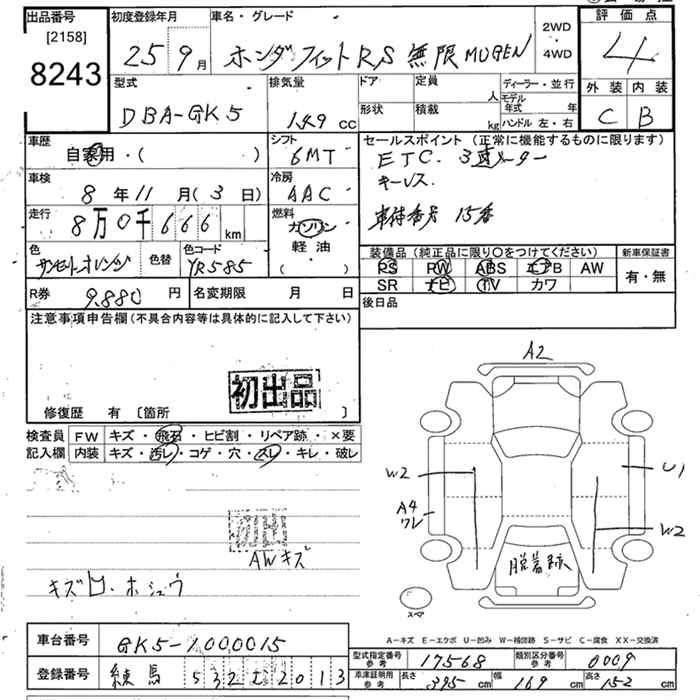 出品番号 [2158] 8243
初度登録年月 25年 9月
車名・グレード ホンダ フィット RS 無限 MUGEN
2WD・4WD
評価点 4
外装 C 内装 B
型式 DBA-GK5
排気量 1.49 cc
ドア 定員 人
形状 積載 kg
ディーラー・並行
モデル年式 年
ハンドル 左・右
車歴 自家用・( )
シフト 6MT
セールスポイント (正常に機能するものに限ります)
ETC. 3連メーター
キーレス
車検 8年 11月(3日)
冷房 AAC
走行 8万0千666km
燃料 ガソリン 軽油 ( )
色 サンセットオレンジ 色替
色コード YR585
装備品 (純正品に限り○をつけてください)
PS PW ABS エアB AW
SR ナビ TV カワ
新車保証書 有・無
R券 9.880円
名変期限 月 日
後日品
注意事項申告欄 (不具合内容等は具体的に記入して下さい)
初出品
修復歴 有 [箇所 ]
検査員記入欄 FW キズ・飛石・ヒビ割・リペア跡・×要
内装 キズ・汚レ・コゲ・穴・スレ・キレ・破レ
A2
W2
U1
A4
W2
脱着跡
スペア
初出
AWキズ
A-キズ E-エクボ U-凹み W-補修跡 S-サビ C-腐食 XX-交換済
車台番号 GK5-1000015
登録番号 練馬 532 2013
型式指定番号 参考 17568
類別区分番号 参考 0009
車庫証明用 参考 長さ 395cm 幅 169cm 高さ 152cm